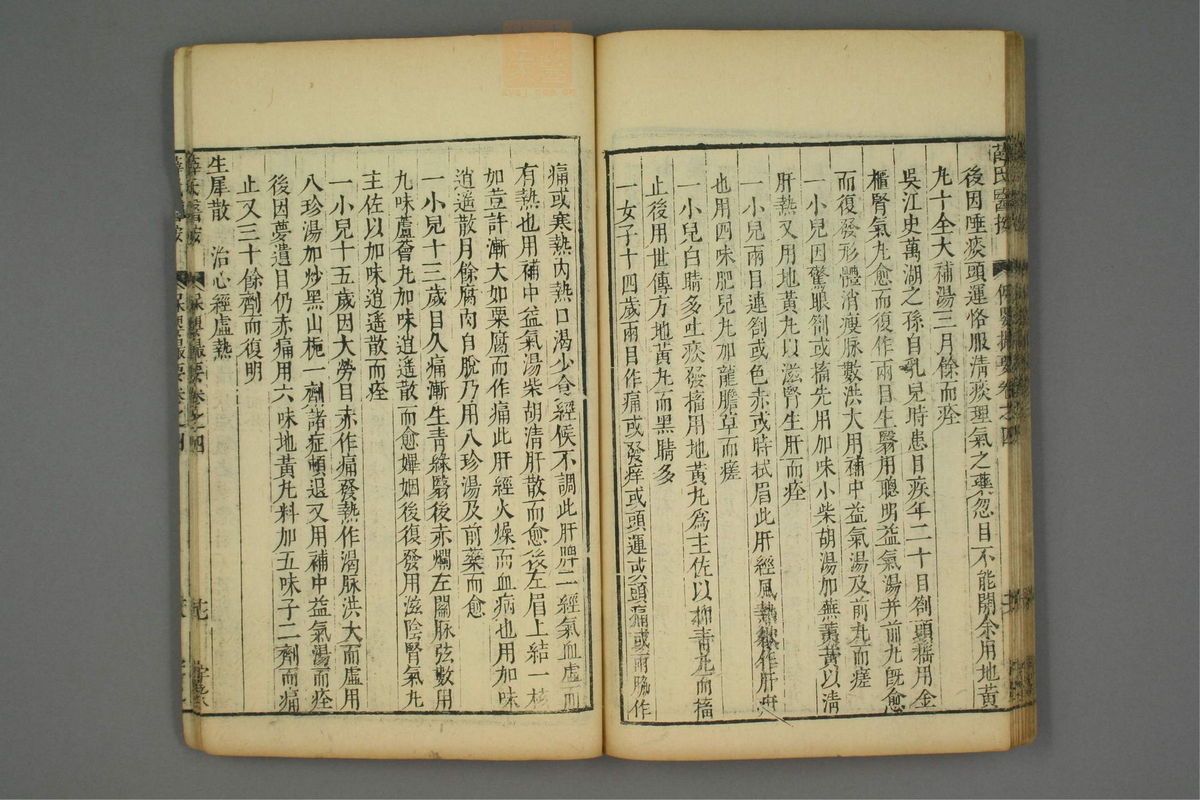 薛氏醫按 保嬰撮要卷之四
後因唾痰頭運恪服清痰理氣之藥忽目不能開余用地黃
丸十全大補湯三月餘而痊
吳江史萬湖之孫自乳兒時患目疾年二十目劄頭搐用金
櫃腎氣丸愈而復作兩目生翳用聰明益氣湯并前丸旣愈
而復發形體消瘦脉數洪大用補中益氣湯及前丸而瘥
一小兒因驚眼劄或搐先用加味小柴胡湯加蕪荑黃以清
肝熱又用地黃丸以滋腎生肝而痊
一小兒兩目連劄或色赤或時拭眉此肝經風熱作肝
也用四味肥兒丸加龍膽草而瘥
一小兒白睛多吐痰發搐用地黃丸爲主佐以抑青丸而搐
止後用世傳方地黃丸而黑睛多
一女子十四歲兩目作痛或發痒或頭運或頭痛或兩脇作
痛或寒熱內熱口渴少食經候不調此肝脾二經氣血虛而
有熱也用補中益氣湯柴胡清肝散而愈後左眉上結一核
如荳許漸大如栗腐而作痛此肝經火燥而血病也用加味
逍遥散月餘腐肉自脫乃用八珍湯及前藥而愈
一小兒十三歲目久痛漸生青綠翳後赤爛左關脉弦數用
九味蘆薈丸加味逍遥散而愈嬋姻後復發用滋陰腎氣丸
主佐以加味逍遥散而痊
一小兒十五歲因大勞目赤作痛發熱作渴脉洪大而虛用
八珍湯加炒黑山梔一劑諸症頓退又用補中益氣湯而痊
後因夢遺目仍赤痛用六味地黃丸料加五味子二劑而痛
止又三十餘劑而復明
生犀散 治心經虛熱
薛氏醫按 保嬰撮要卷之四